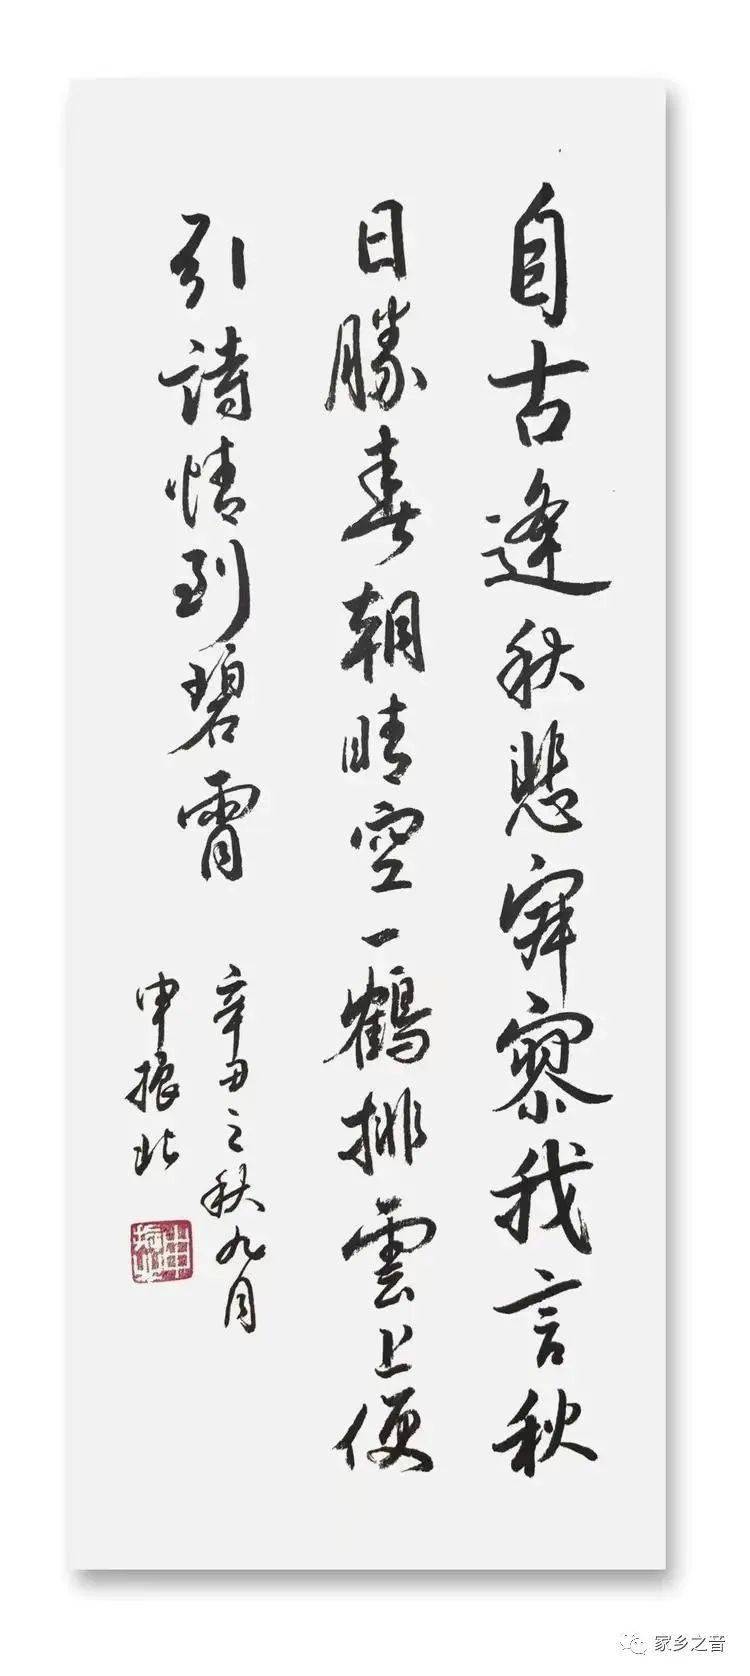 自古逢秋悲寂寥我言秋
日勝春朝晴空一鶴排雲上便
引詩情到碧霄
辛丑之秋九月
申振
家乡之音